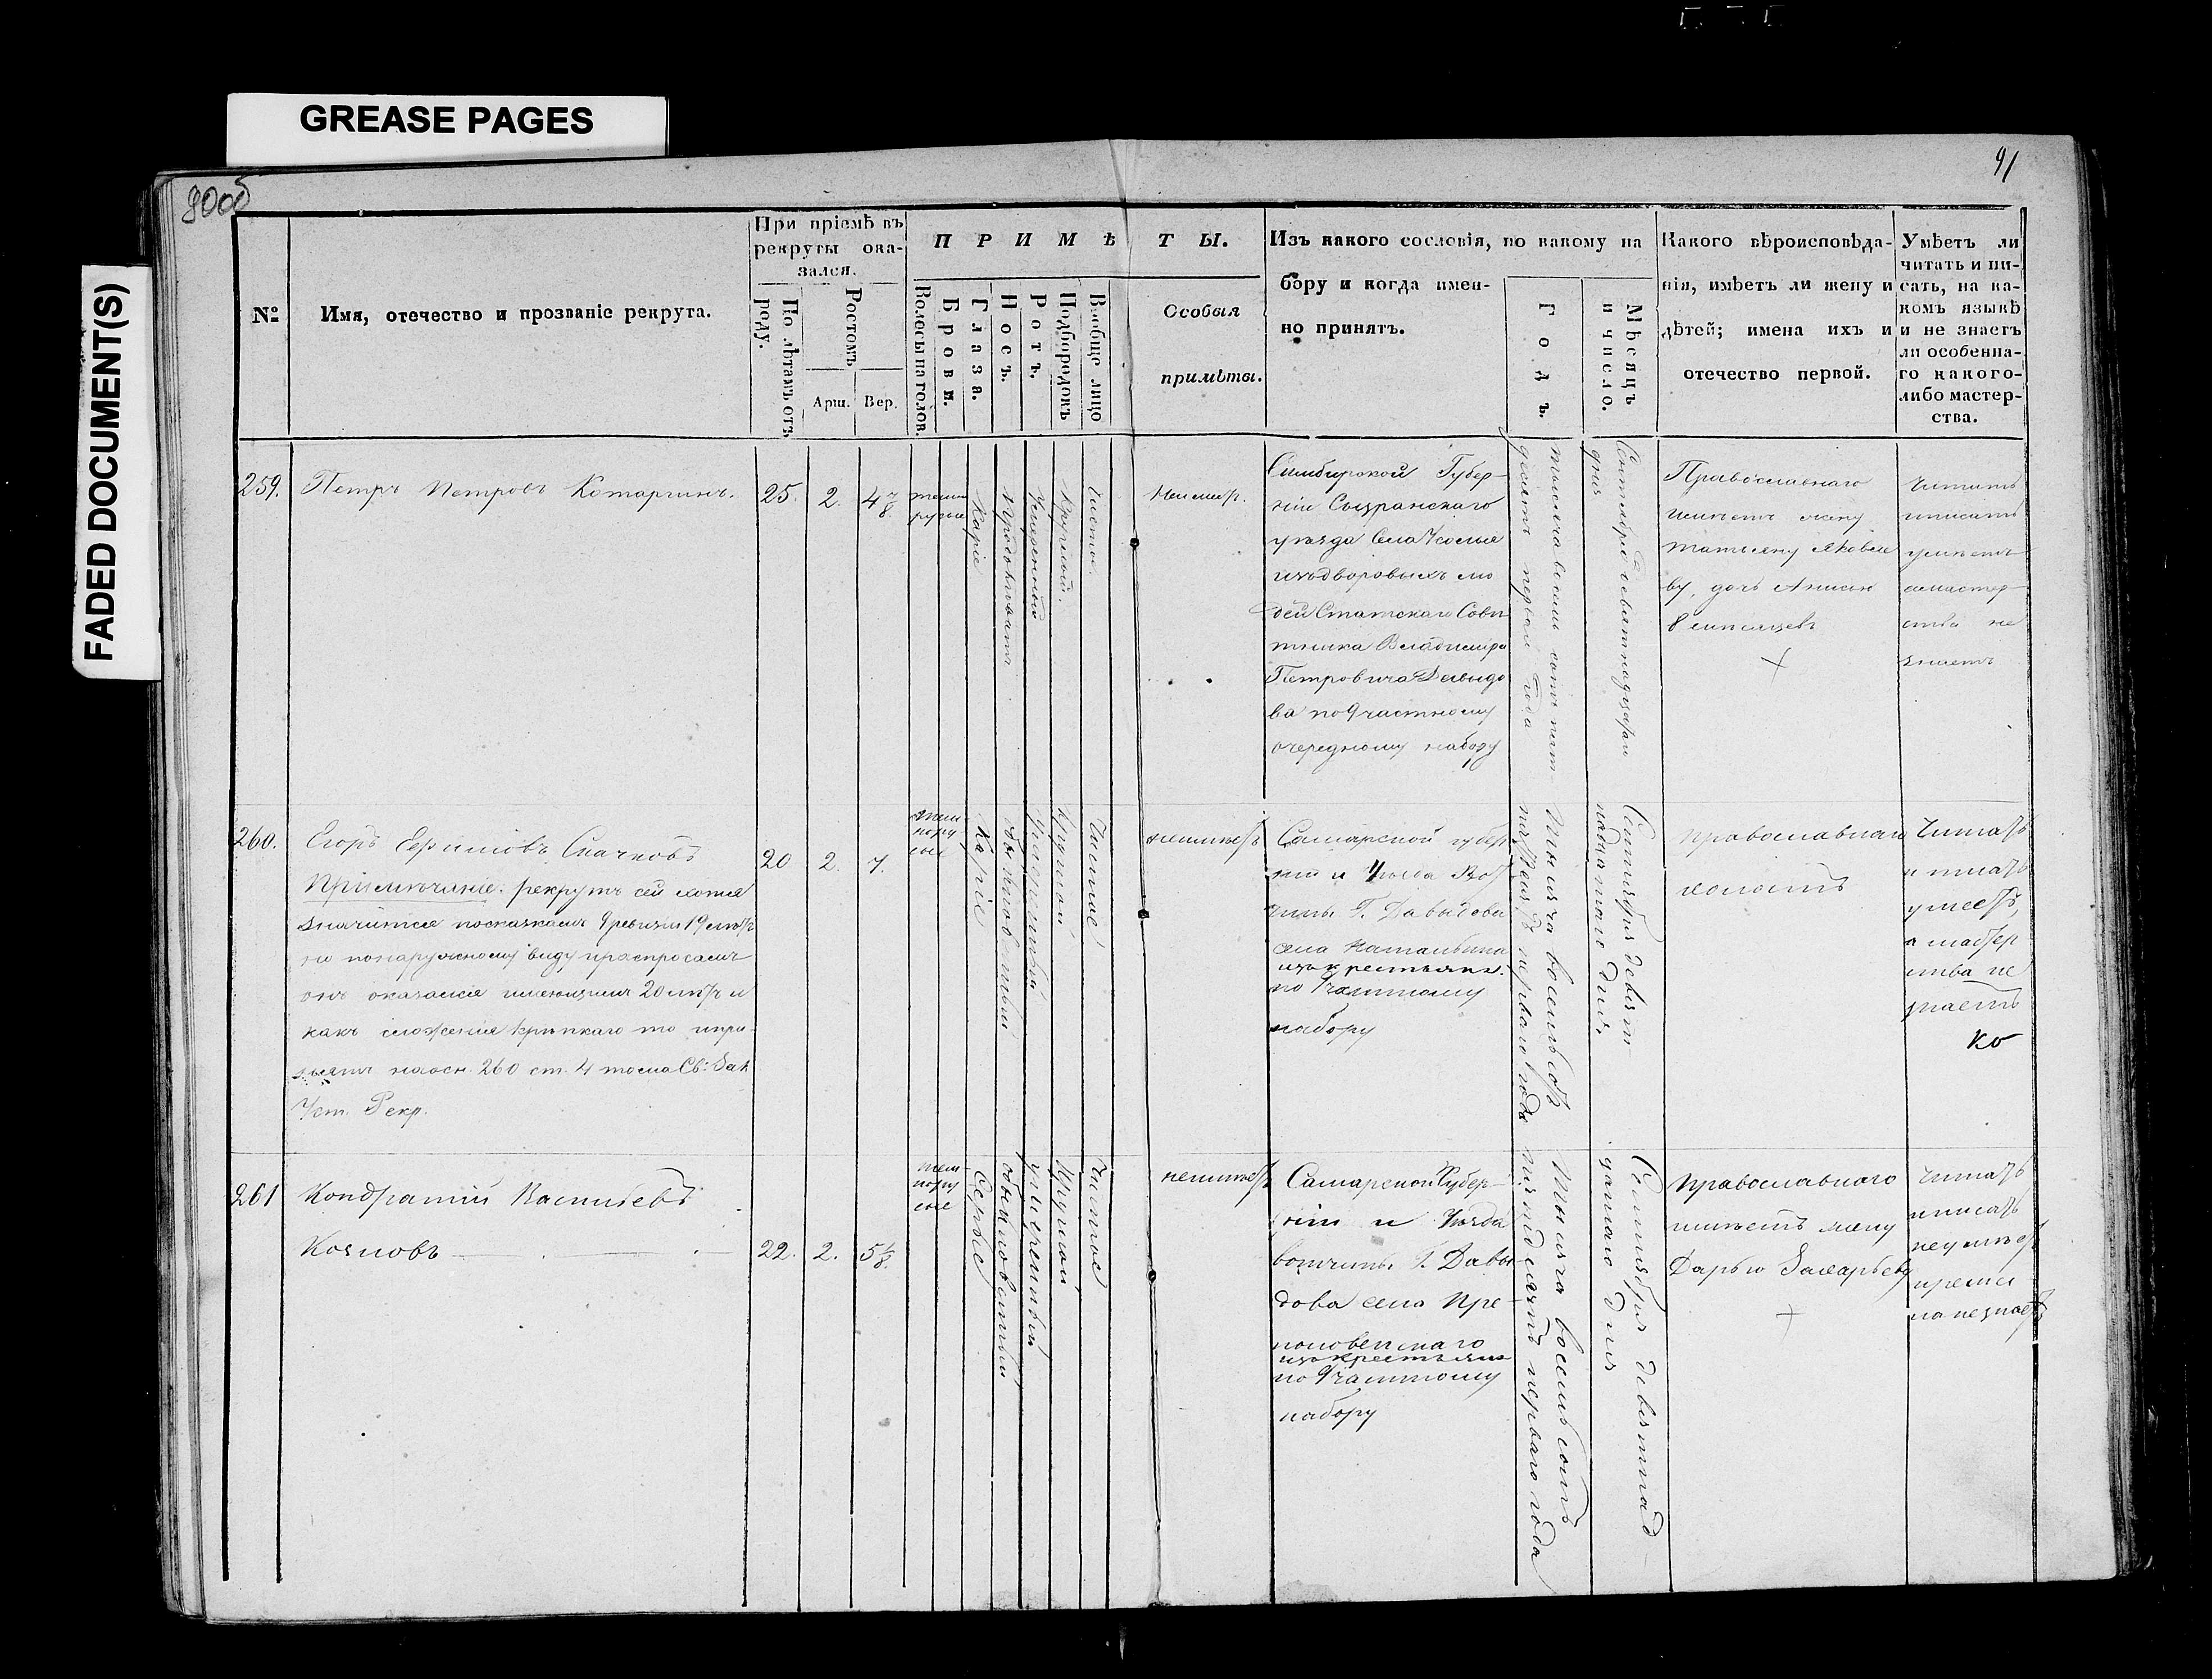 GREASE PAGES
FADED DOCUMENT(S)
90об
91
№
Имя, отечество и прозваніе рекрута.
При пріемѣ въ
рекруты ока-
зался.
По лѣтамъ отъ
роду.
Ростомъ
Арш.
Вер.
ПРИМѢТЫ.
Волосы на голов.
Брови.
Глаза.
Носъ.
Ротъ.
Подбородокъ
Вообще лицо
Особыя
примѣты.
Изъ какого сословія, по какому на
бору и когда имен-
но принятъ.
Годъ.
Мѣсяцъ
и число.
Какого вѣроисповѣда-
нія, имѣетъ ли жену и
дѣтей; имена ихъ и
отечество первой.
Умѣетъ ли
читать и пи-
сать, на ка-
комъ языкѣ
и не знаетъ
ли особенна-
го какого-
либо мастер-
ства.
259.
Петръ Петровъ Котаргинъ.
25.
2.
4 7/8.
темно
русые
Каріе
Продолговатъ
Умѣренный
Круглый.
Чистое.
Неимѣт.
Симбирской Губер-
ніи Сызранскаго
уѣзда Села Усолья
изъ дворовыхъ лю
дей Статскаго Совѣ
тника Владиміра
Петровича Давыдо
ва по 9 частному
очередному набору
тысяча восемь сотъ пять
десятъ первый года
Сентября девятнадцатаго
дня
Православнаго
имѣетъ жену
Татьяну Яковле
ву, дочь Анисью
8 мѣсяцевъ
Читать
и писать
умѣетъ
а мастер
ства не
знаетъ
260.
Егоръ Ефимовъ Скачковъ
Примѣчаніе: рекрутъ сей хотя
значится по сказкамъ 9 ревизіи 19 лѣтъ
но по наружному виду и распросамъ
онъ оказался имѣющимъ 20 лѣтъ и
какъ сложенія крѣпкаго то и при-
нятъ на осн. 260 ст. 4 тома Св: Зак
Уст. Рекр.
20
2.
7.
тем-
нору
сые
Каріе
обыкновенный
Умѣренный
Круглый
Чистое
неимѣетъ
Самарской губер
ніи и Уѣзда Вот
чины Г. Давыдова
села Натальина
изъ крестьянъ.
по 9 частному
набору
Тысяча восемьсотъ
пятьдесятъ перваго года
Сентября девят-
надцатаго дня.
Православнаго
холостъ
Читать
и писать
умеетъ,
а мастер
ства не
знаетъ
ко
261
Кондратій Васильевъ
Козловъ
22.
2.
5 1/8.
тем-
нору
сые
Серые
обыкновенный
умѣренный
Круглый
Чистое
неимѣетъ
Самарской Губер-
ніи и Уѣзда
вотчины Г. Давы-
дова села Пре-
половенскаго
изъ крестьянъ
по 9 частному
набору
Тысяча восемьсотъ
пятьдесятъ перваго года
Сентября девятнад-
цатаго дня
Православнаго
имѣетъ жену
Дарью Захарьеву
Читать
и писать
неумѣетъ
и ремес
ла незнаетъ